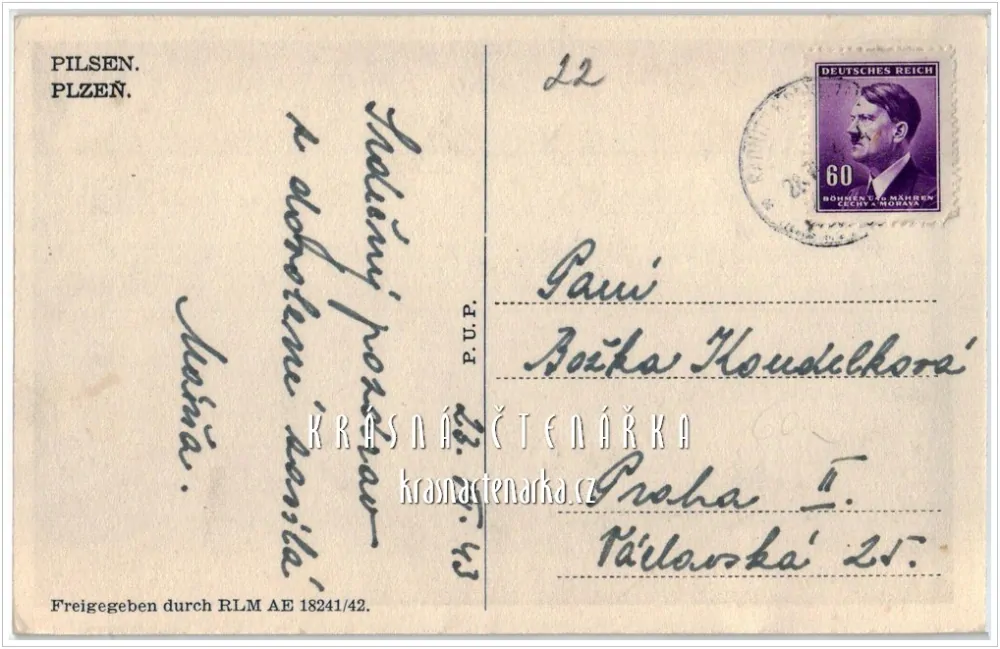 PILSEN.
PLZEŇ.
22
DEUTSCHES REICH
60
BÖHMEN U. MÄHREN
ČECHY A MORAVA
Srdečný pozdrav
z dovolené zasílá
Máňa.
23. 43
P. U. P.
Paní
Božka Koudelková
Praha II.
Václavská 25.
KRÁSNÁ ČTENÁŘKA
krasnactenarka.cz
Freigegeben durch RLM AE 18241/42.